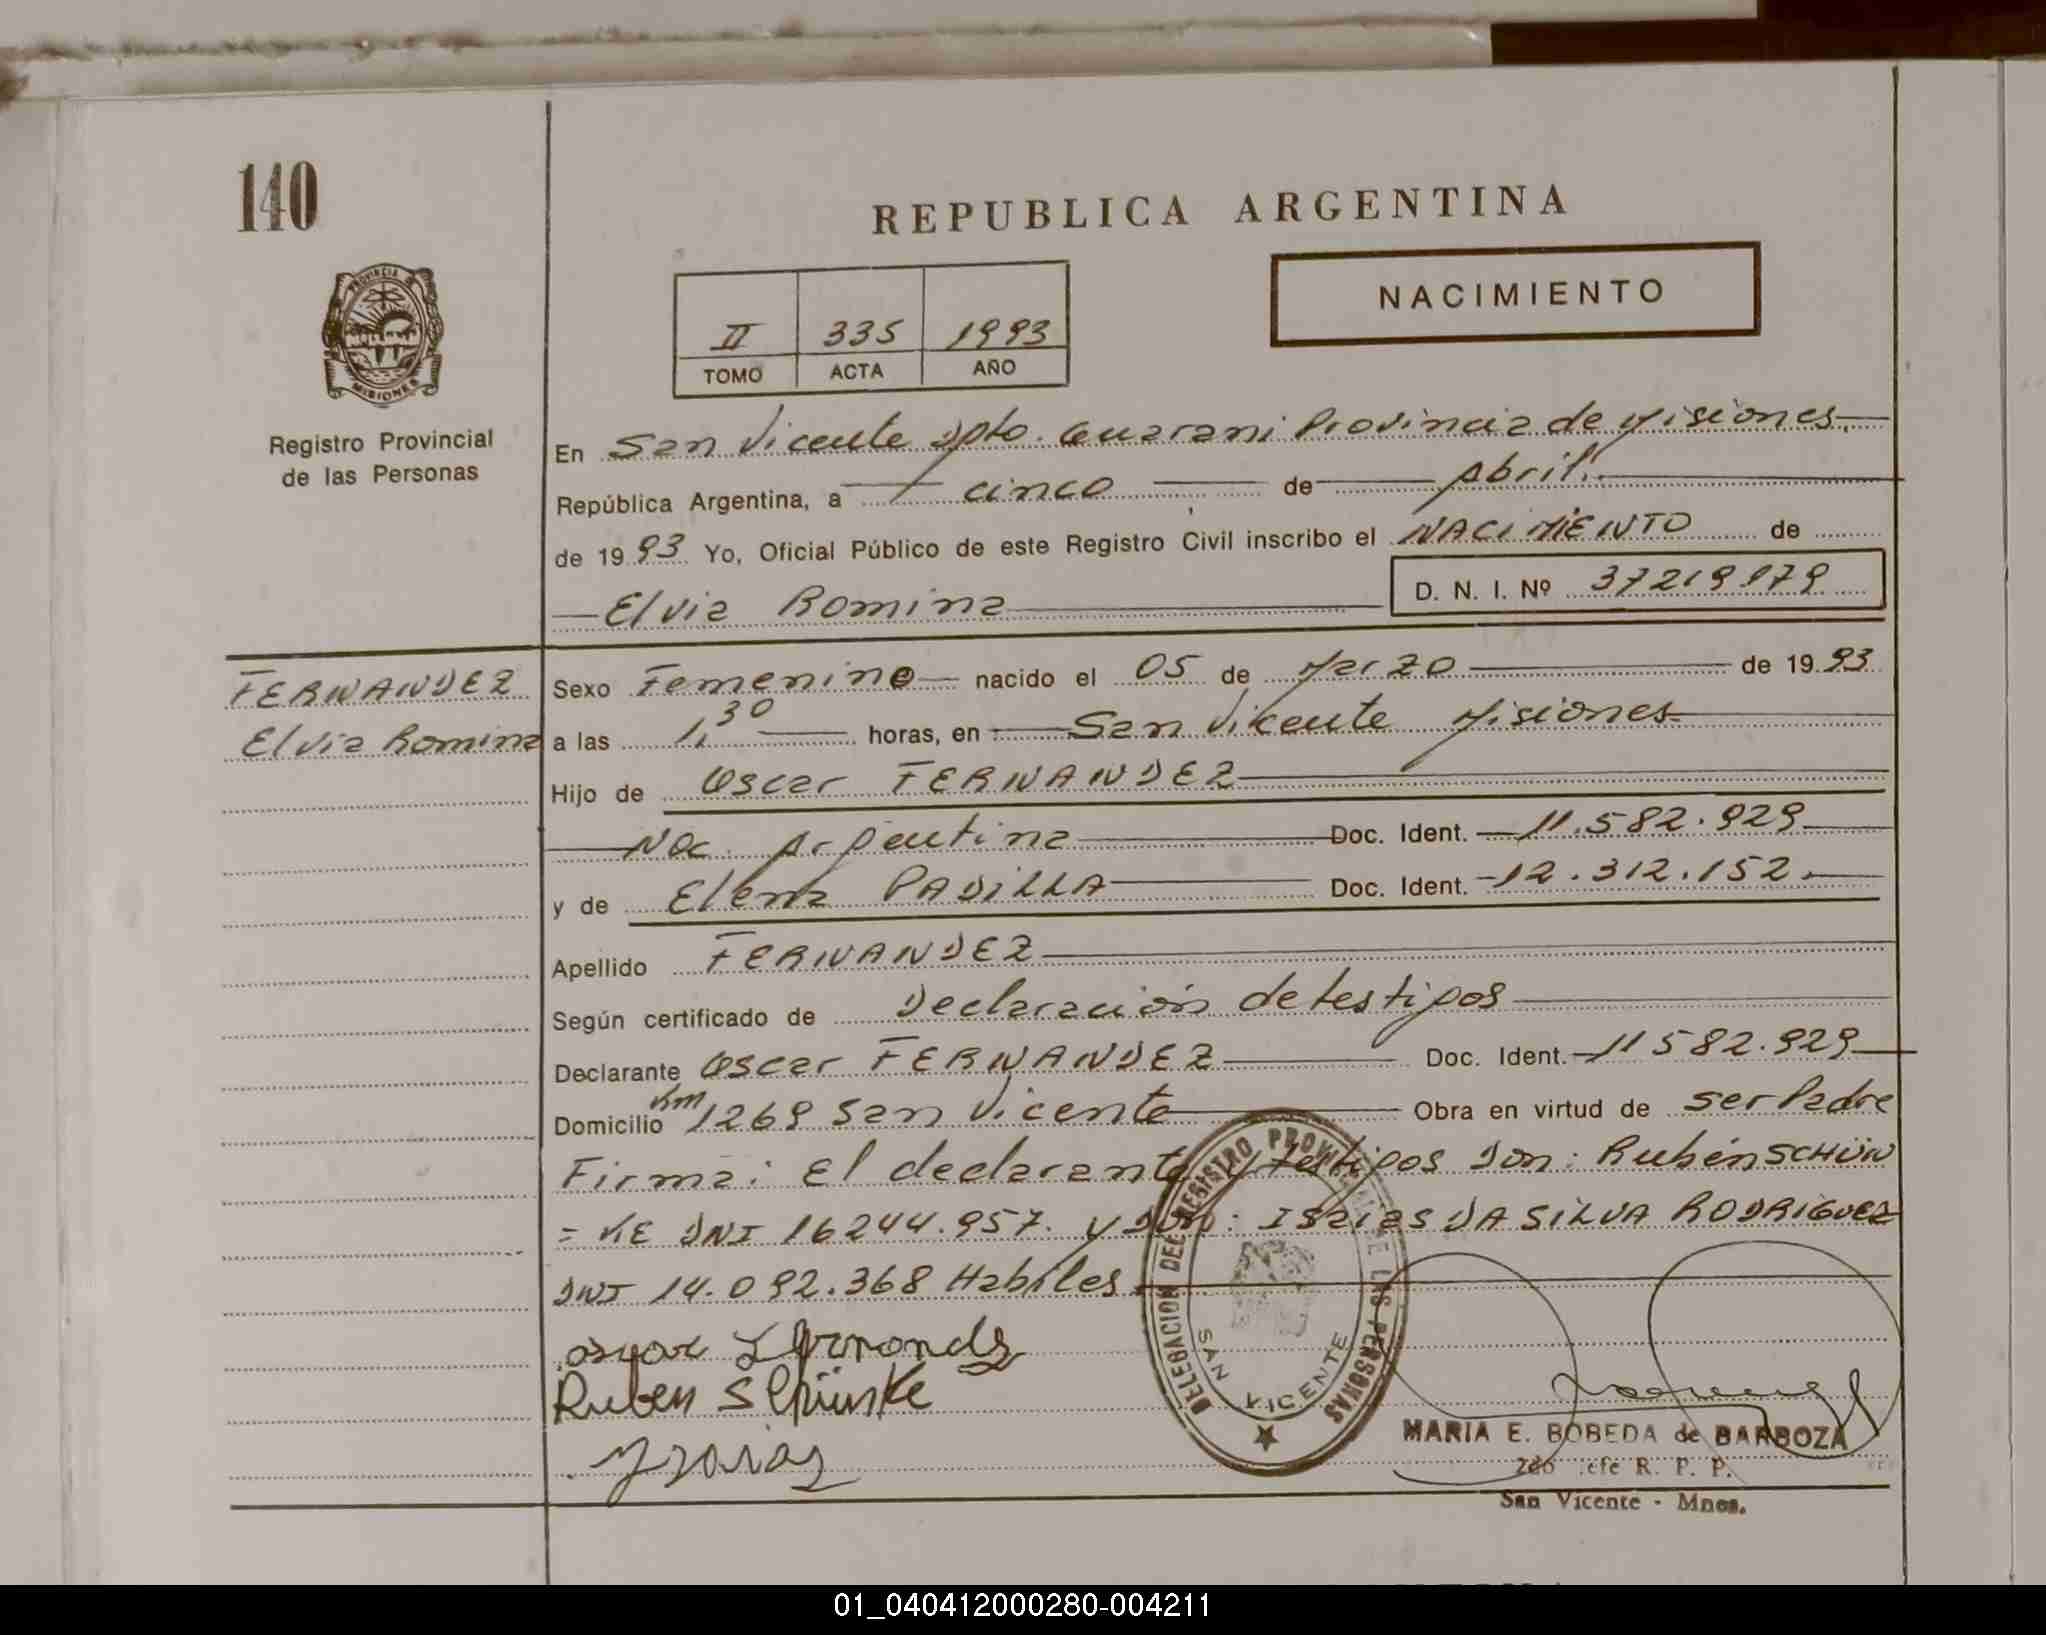 140
REPUBLICA ARGENTINA
NACIMIENTO
II 335 1993
TOMO ACTA AÑO
PROVINCIA DE MISIONES
Registro Provincial
de las Personas
En San Vicente Dpto. Guarani Provincia de Misiones.
República Argentina, a cinco de Abril
de 1993 Yo, Oficial Público de este Registro Civil inscribo el NACIMIENTO de
Elvia Romina D. N. I. Nº 37219179
FERNANDEZ
Elvia Romina
Sexo Femenino nacido el 05 de Marzo de 1993
a las 1,30 horas, en San Vicente Misiones
Hijo de Oscar FERNANDEZ
Nac. Argentina Doc. Ident. 11.582.929
y de Elena PADILLA Doc. Ident. 12.312.152.
Apellido FERNANDEZ
Según certificado de Declaración de testigos
Declarante Oscar FERNANDEZ Doc. Ident. 11582.929
Domicilio Km 1269 San Vicente Obra en virtud de ser Padre
Firma: El declarante y testigos Don: Rubén SCHÜN
= KE DNI 16244.957. y Don: Isaias DA SILVA RODRIGUEZ
DNI 14.092.368 Habiles
Ruben
DELEGACION DEL REGISTRO PROVINCIAL DE LAS PERSONAS
SAN VICENTE
MARIA E. BOBEDA de BARBOZA
2do Jefe R. P. P.
San Vicente - Mnes.
01_040412000280-004211